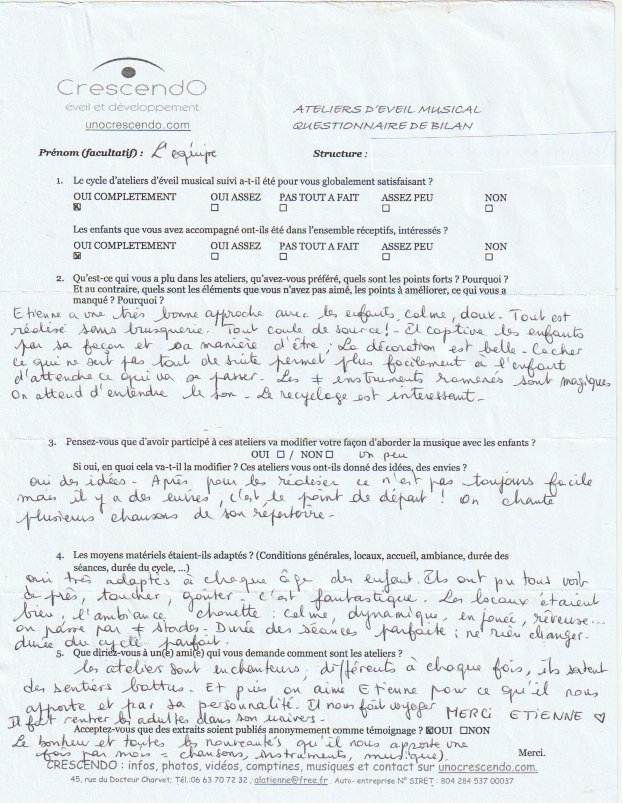 CrescendO
éveil et développement
unocrescendo.com
ATELIERS D'EVEIL MUSICAL
QUESTIONNAIRE DE BILAN
Prénom (facultatif) : L'equipe
Structure :
1. Le cycle d'ateliers d'éveil musical suivi a-t-il été pour vous globalement satisfaisant ?
OUI COMPLETEMENT OUI ASSEZ PAS TOUT A FAIT ASSEZ PEU NON
☒ ☐ ☐ ☐ ☐
Les enfants que vous avez accompagné ont-ils été dans l'ensemble réceptifs, intéressés ?
OUI COMPLETEMENT OUI ASSEZ PAS TOUT A FAIT ASSEZ PEU NON
☒ ☐ ☐ ☐ ☐
2. Qu'est-ce qui vous a plu dans les ateliers, qu'avez-vous préféré, quels sont les points forts ? Pourquoi ?
Et au contraire, quels sont les éléments que vous n'avez pas aimé, les points à améliorer, ce qui vous a
manqué ? Pourquoi ?
Etienne a une très bonne approche avec les enfants, calme, doux. Tout est
réalisé sans brusquerie. Tout coule de source ! - Il captive les enfants
par sa façon et sa manière d'être ; La décoration est belle - Cacher
ce qui ne sert pas tout de suite permet plus facilement à l'enfant
d'attendre ce qui va se passer. Les ≠ instruments ramenés sont magiques
On attend d'entendre le son - Le recyclage est interessant -
3. Pensez-vous que d'avoir participé à ces ateliers va modifier votre façon d'aborder la musique avec les enfants ?
OUI ☐ / NON ☐ un peu
Si oui, en quoi cela va-t-il la modifier ? Ces ateliers vous ont-ils donné des idées, des envies ?
oui des idées - Après pour les réaliser ce n'est pas toujours facile
mais il y a des envies, c'est le point de départ ! On chante
plusieurs chansons de son répertoire -
4. Les moyens matériels étaient-ils adaptés ? (Conditions générales, locaux, accueil, ambiance, durée des
séances, durée du cycle, ...)
oui très adaptés à chaque âge des enfant. Ils ont pu tous voir
de près, toucher, goûter - c'est fantastique. Les locaux étaient
bien, l'ambiance chouette : calme, dynamique, enjouée, rêveuse...
on passe par ≠ stades - Durée des séances parfaite ; ne rien changer -
durée du cycle parfait.
5. Que diriez-vous à un(e) ami(e) qui vous demande comment sont les ateliers ?
les atelier sont enchanteurs, différents à chaque fois, ils sortent
des sentiers battus. Et puis on aime Etienne pour ce qu'il nous
apporte et par sa personnalité. Il nous fait voyager
Il fait rentrer les adultes dans son univers - MERCI ETIENNE ♡
Acceptez-vous que des extraits soient publiés anonymement comme témoignage ? ☒OUI ☐NON
Le bonheur et toutes les nouveautés qu'il nous apporte une
fois par mois - (chansons, instruments, musique)
Merci.
CRESCENDO : infos, photos, vidéos, comptines, musiques et contact sur unocrescendo.com.
45, rue du Docteur Charvet; Tél.:06 63 70 72 32 , alatienne@free.fr . Auto- entreprise N° SIRET : 804 284 537 00037